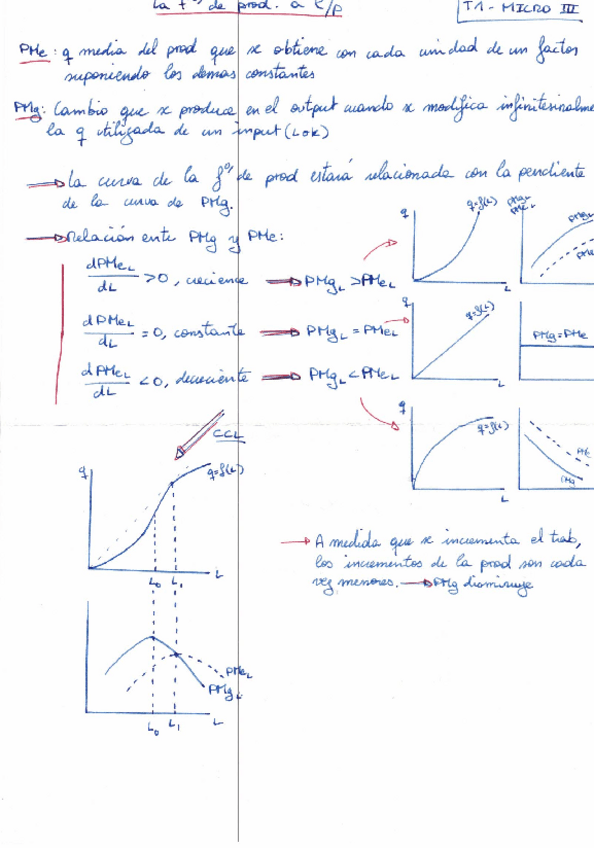 La fᵒⁿ de prod. a c/p
T1 - MICRO III
PMe: q media del prod que se obtiene con cada unidad de un factor
suponiendo los demas constantes
PMg: Cambio que se produce en el output cuando se modifica infinitesimalme
la q utilizada de un input (L o K)
La curva de la fᵒⁿ de prod estará relacionada con la pendiente
de la curva de PMg.
Relación ente PMg y PMe:
dPMeL/dL >0, creciene → PMgL > PMeL
dPMeL/dL = 0, constante → PMgL = PMeL
dPMeL/dL <0, decreciente → PMgL < PMeL
q
q=f(L)
L
PMgL
PMeL
PMgL
PMe
q
q=f(L)
L
PMg=PMe
q
q=f(L)
L
PMe
CCL
q
q=f(L)
L0 L1 L
A medida que se incrementa el trab,
los incrementos de la prod son cada
vez menores. → PMg disminuye
PMeL
PMgL
L0 L1 L